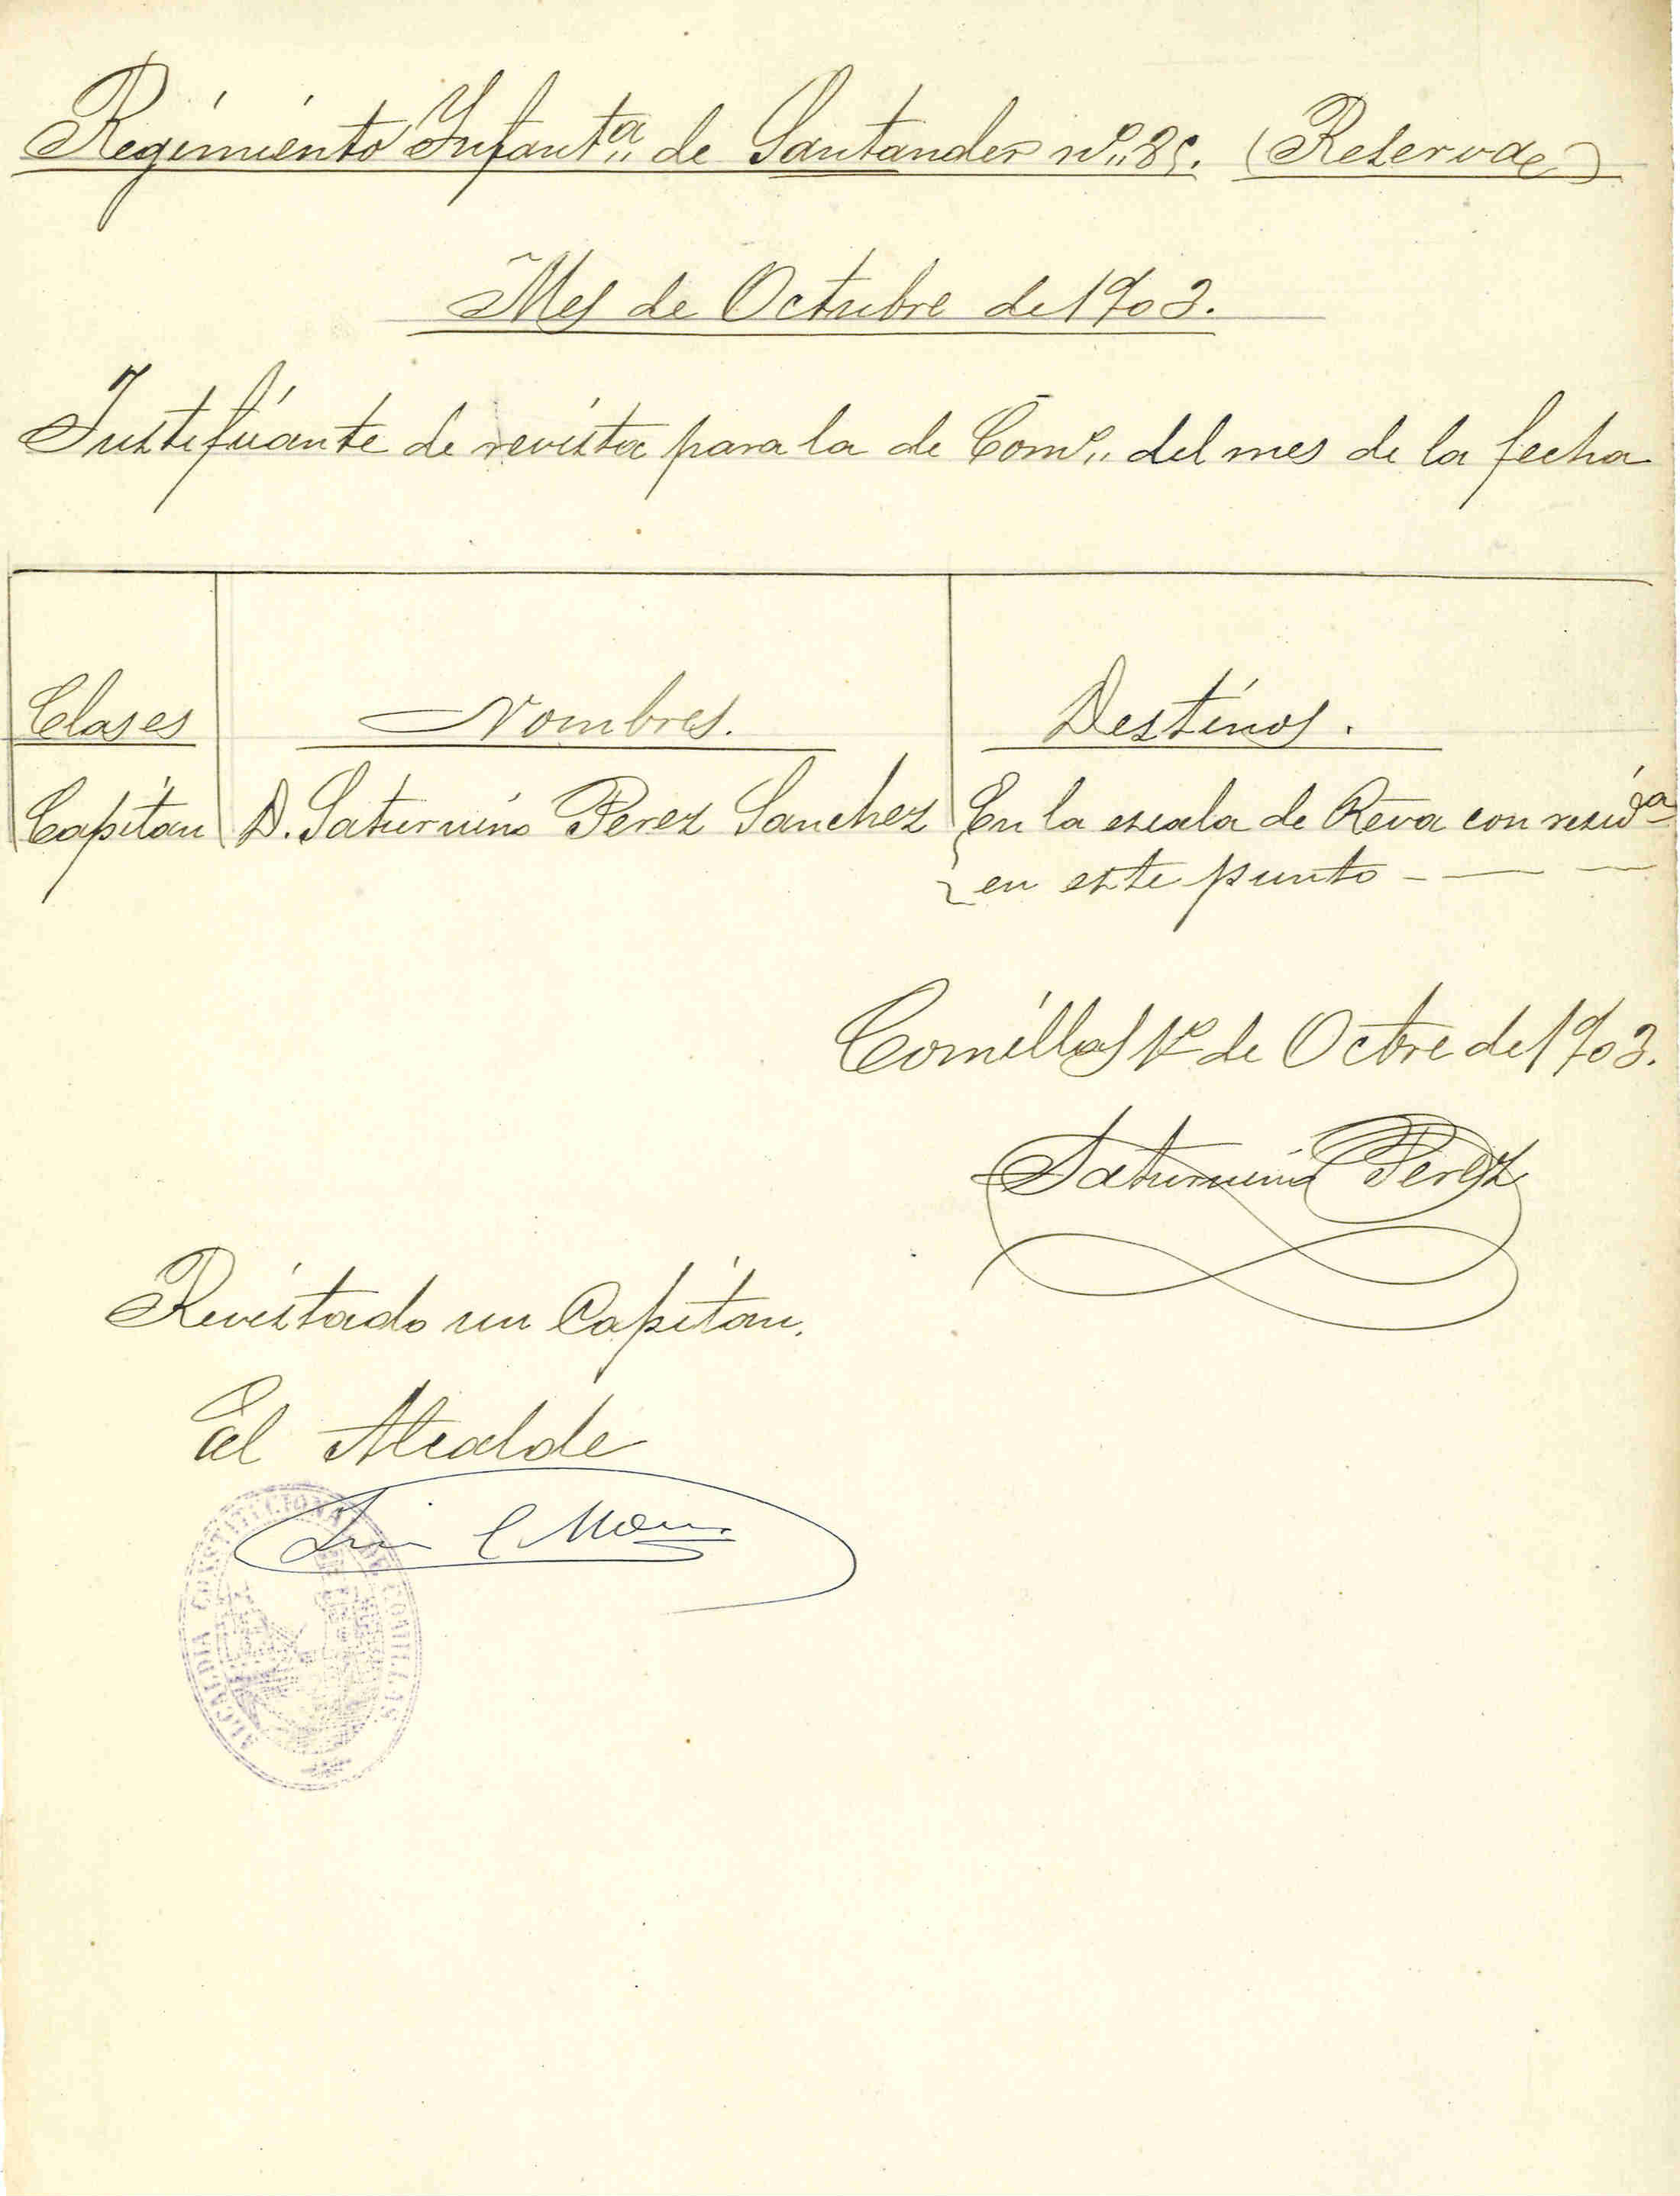 Regimiento Infantª de Santander nº 85. (Reserva)
Mes de Octubre de 1903.
Justificante de revista para la de Comº del mes de la fecha
Clases Nombres. Destinos.
Capitan D. Saturnino Perez Sanchez En la escala de Reva con residª
en este punto
Comillas 1º de Octbre de 1903.
Saturnino Perez
Revistado un Capitan.
El Alcalde
ALCALDIA CONSTITUCIONAL DE COMILLAS